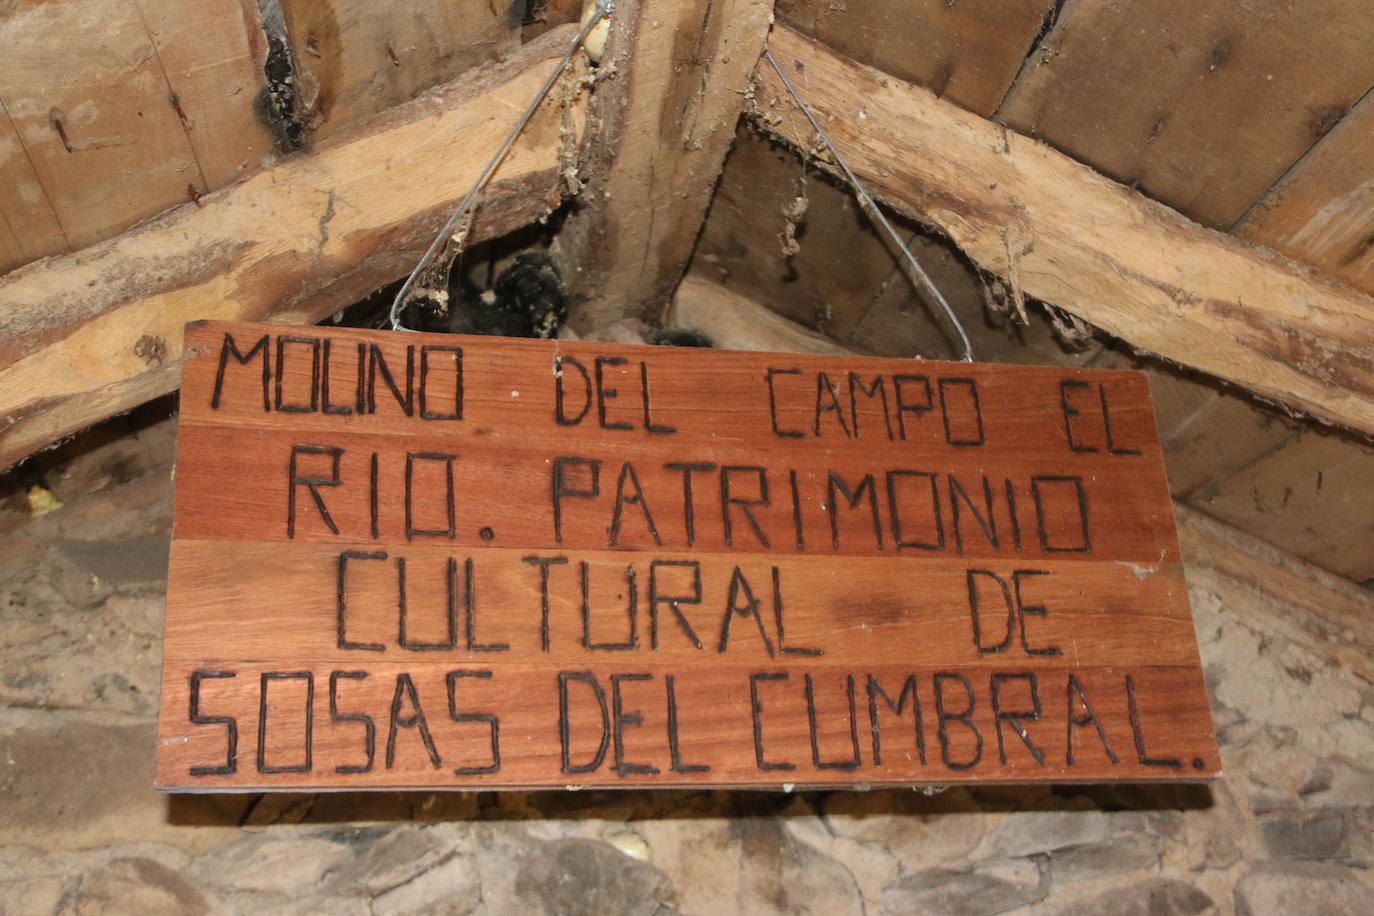 MOLINO DEL CAMPO EL
RIO. PATRIMONIO
CULTURAL DE
SOSAS DEL CUMBRAL.